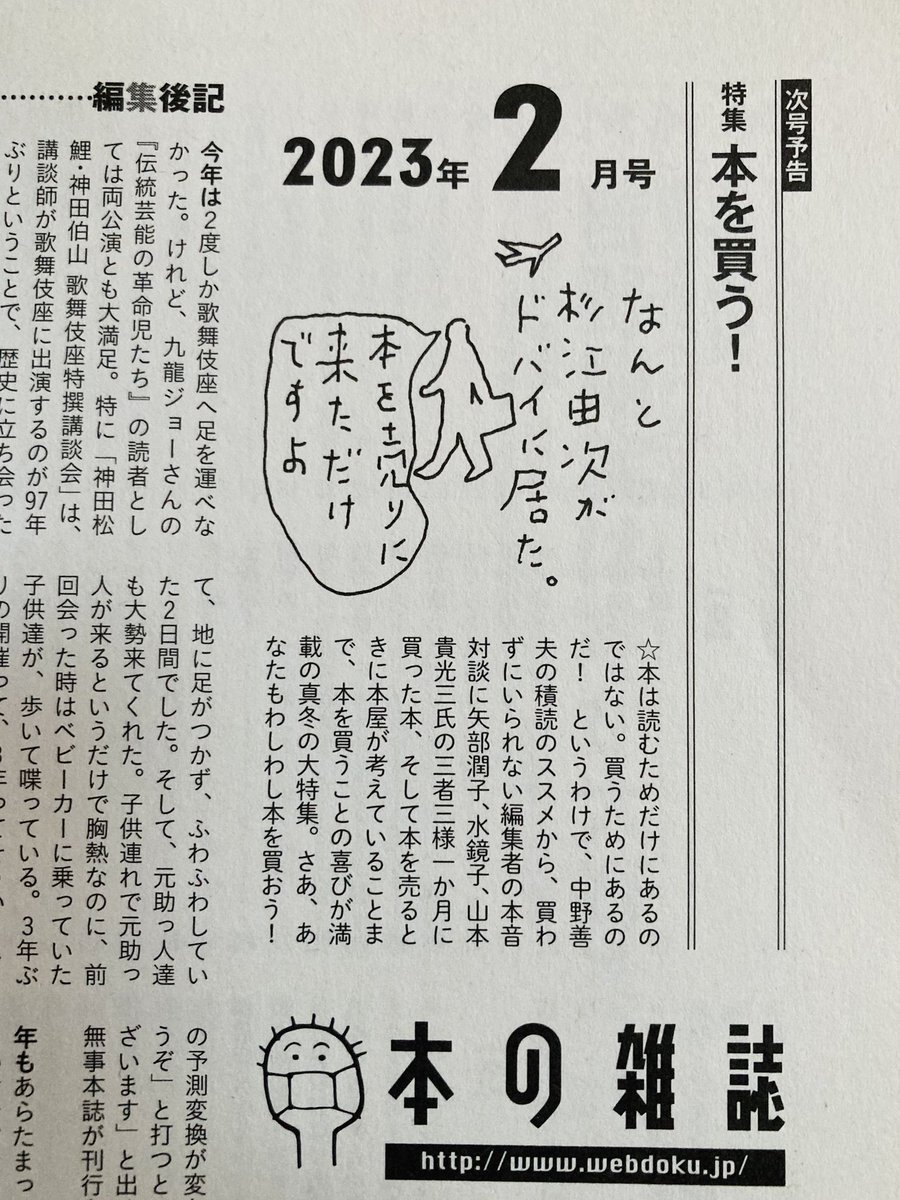 次号予告
特集 本を買う!
2023年2月号
なんと
杉江由次が
ドバイに居た。
本を売りに
来ただけ
ですよ
☆本は読むためだけにあるの
ではない。買うためにあるの
だ! というわけで、中野善
夫の積読のススメから、買わ
ずにいられない編集者の本音
対談に矢部潤子、水鏡子、山本
貴光三氏の三者三様一か月に
買った本、そして本を売ると
きに本屋が考えていることま
で、本を買うことの喜びが満
載の真冬の大特集。さあ、あ
なたもわしわし本を買おう!
本の雑誌
http://www.webdoku.jp/
編集後記
今年は2度しか歌舞伎座へ足を運べな
かった。けれど、九龍ジョーさんの
『伝統芸能の革命児たち』の読者とし
ては両公演とも大満足。特に「神田松
鯉・神田伯山 歌舞伎座特撰講談会」は、
講談師が歌舞伎座に出演するのが97年
ぶりということで、歴史に立ち会った
て、地に足がつかず、ふわふわしてい
た2日間でした。そして、元助っ人達
も大勢来てくれた。子供連れで元助っ
人が来るというだけで胸熱なのに、前
回会った時はベビーカーに乗っていた
子供達が、歩いて喋っている。3年ぶ
の予測変換が変
うぞ」と打つと
ざいます」と出
無事本誌が刊行
年もあらたまっ